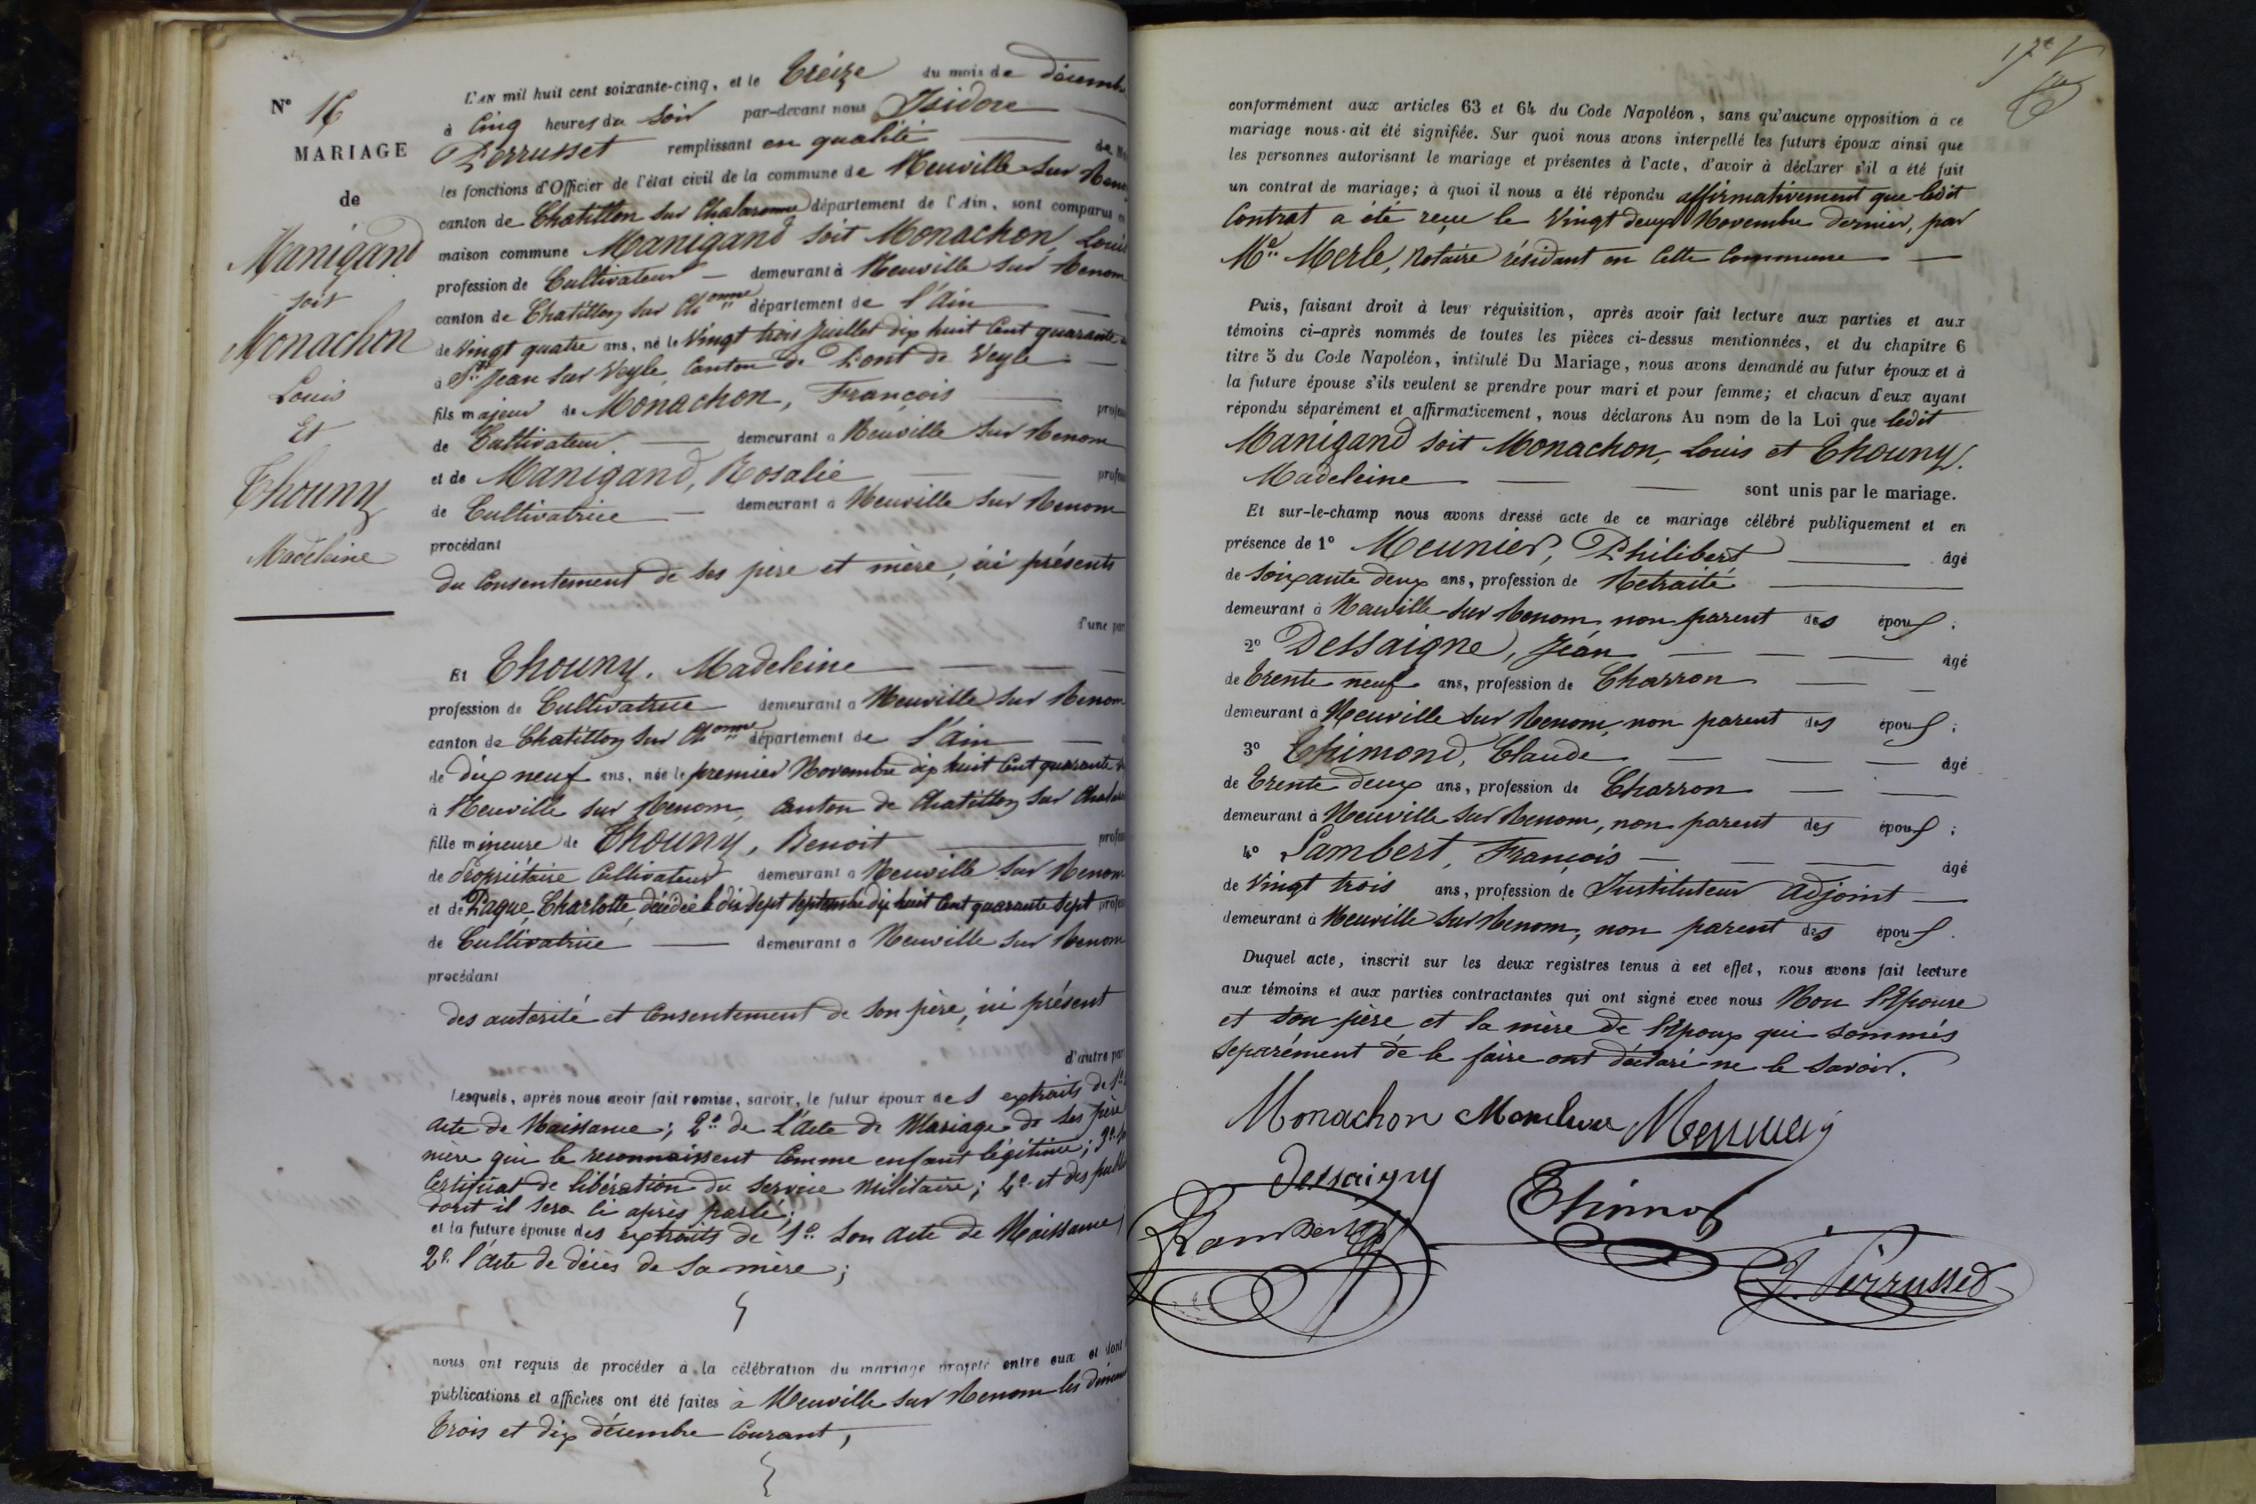 N° 16
MARIAGE
de
Manigand
soit
Monachon
Louis
Et
Thouny
Madeleine
L'AN mil huit cent soixante-cinq, et le treize du mois de décemb
à cinq heures du soir par-devant nous Isidore
Perrusset remplissant en qualité de
les fonctions d'Officier de l'état civil de la commune de Neuville sur Renom
canton de Chatillon sur Chalaronne département de l'Ain, sont comparus en
maison commune Manigand soit Monachon, Louis
profession de Cultivateur demeurant à Neuville sur Renom
canton de Chatillon sur Ch.onne département de l'Ain
de vingt quatre ans, né le vingt trois Juillet dix huit cent quarante
à St Jean sur Veyle, Canton de Pont de Veyle
fils majeur de Monachon, François profess
de Cultivateur demeurant à Neuville sur Renom
et de Manigand, Rosalie profess
de Cultivatrice demeurant à Neuville sur Renom
procédant
du consentement de ses père et mère, ici présents
d'une part
Et Thouny, Madeleine
profession de Cultivatrice demeurant à Neuville sur Renom
canton de Chatillon sur Ch.onne département de l'Ain
de dix neuf ans, née le premier Novembre dix huit cent quarante
à Neuville sur Renom, canton de Chatillon sur Chalar
fille mineure de Thouny, Benoit profess
de Propriétaire Cultivateur demeurant à Neuville sur Renom
et de Paque, Charlotte, décédée le dix sept septembre dix huit cent quarante sept profess
de Cultivatrice demeurant à Neuville sur Renom
procédant
des autorité et consentement de son père, ici présent
d'autre part
Lesquels, après nous avoir fait remise, savoir, le futur époux des extraits de 1°
acte de Naissance; 2° de l'acte de Mariage de ses père
mère qui le reconnaissent comme enfant légitime; 3°
Certificat de libération du service militaire; 4° et des publi
dont il sera ci après parlé;
et la future épouse des extraits de 1° son acte de Naissance
2° l'acte de décès de sa mère;
nous ont requis de procéder à la célébration du mariage projeté entre eux et dont
publications et affiches ont été faites à Neuville sur Renom les diman
trois et dix décembre courant,
conformément aux articles 63 et 64 du Code Napoléon, sans qu'aucune opposition à ce
mariage nous ait été signifiée. Sur quoi nous avons interpellé les futurs époux ainsi que
les personnes autorisant le mariage et présentes à l'acte, d'avoir à déclarer s'il a été fait
un contrat de mariage; à quoi il nous a été répondu affirmativement que ledit
Contrat a été reçu le vingt deux Novembre dernier, par
Me Merle, Notaire résidant en cette Commune
Puis, faisant droit à leur réquisition, après avoir fait lecture aux parties et aux
témoins ci-après nommés de toutes les pièces ci-dessus mentionnées, et du chapitre 6
titre 5 du Code Napoléon, intitulé Du Mariage, nous avons demandé au futur époux et à
la future épouse s'ils veulent se prendre pour mari et pour femme; et chacun d'eux ayant
répondu séparément et affirmativement, nous déclarons Au nom de la Loi que ledit
Manigand soit Monachon, Louis et Thouny,
Madeleine sont unis par le mariage.
Et sur-le-champ nous avons dressé acte de ce mariage célébré publiquement et en
présence de 1° Meunier, Philibert âgé
de soixante deux ans, profession de Retraité
demeurant à Neuville sur Renom, non parent des époux;
2° Dessaigne, Jean âgé
de trente neuf ans, profession de Charron
demeurant à Neuville sur Renom, non parent des époux;
3° Thimond, Claude âgé
de trente deux ans, profession de Charron
demeurant à Neuville sur Renom, non parent des époux;
4° Lambert, François âgé
de vingt trois ans, profession de Instituteur adjoint
demeurant à Neuville sur Renom, non parent des époux.
Duquel acte, inscrit sur les deux registres tenus à cet effet, nous avons fait lecture
aux témoins et aux parties contractantes qui ont signé avec nous Non l'Epouse
et son père et la mère de l'Epoux qui sommés
séparément de le faire ont déclaré ne le savoir.
Monachon Meunier
Dessaigny
Lambert
Thimod
J. Perrusset